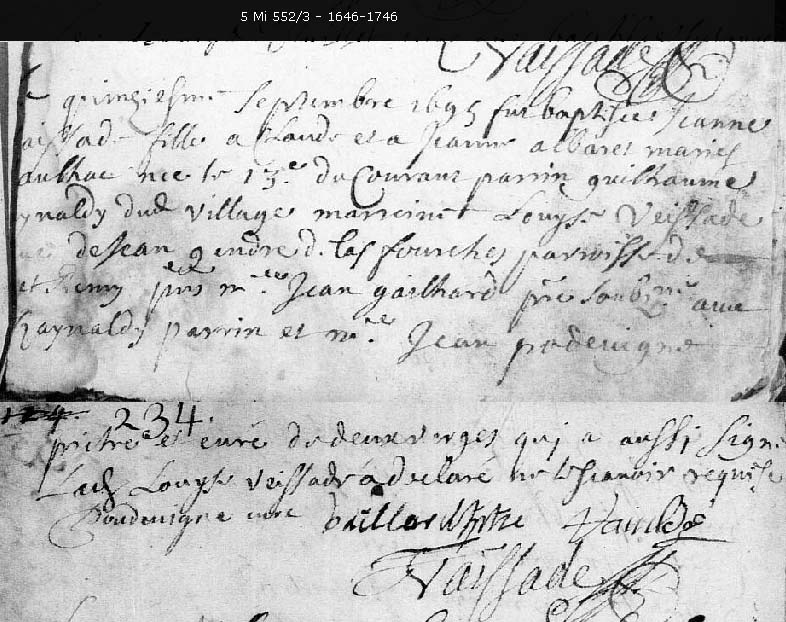 5 Mi 552/3 - 1646-1746
Vaissade
quinziesme septembre 1695 fut baptisee Jeanne
fille a Claude et a Jeanne albaret maries
nee le 13e du Courant parrin guilhaume
ynaldy dud village marrine Louyse Veissade
de Jean gendre d. las fourches parroisse de
st Remy pns mre Jean gailhard ptre soubne avec
Raynaldy parrin et mre Jean podevigne
124. 234.
prictre et curé de deux verges qui a aussi signe
Lad Louyse veissade a declare ne scavoir requise
Poudevigne cure Gaillard ptre
Vaissade